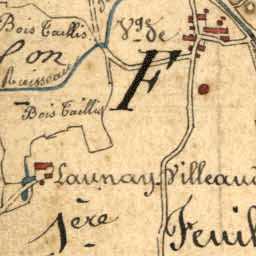 Bois Taillis
Vge. de
Ruisseau
F
Bois Taillis
Launay Villeau
1ère
Feuil